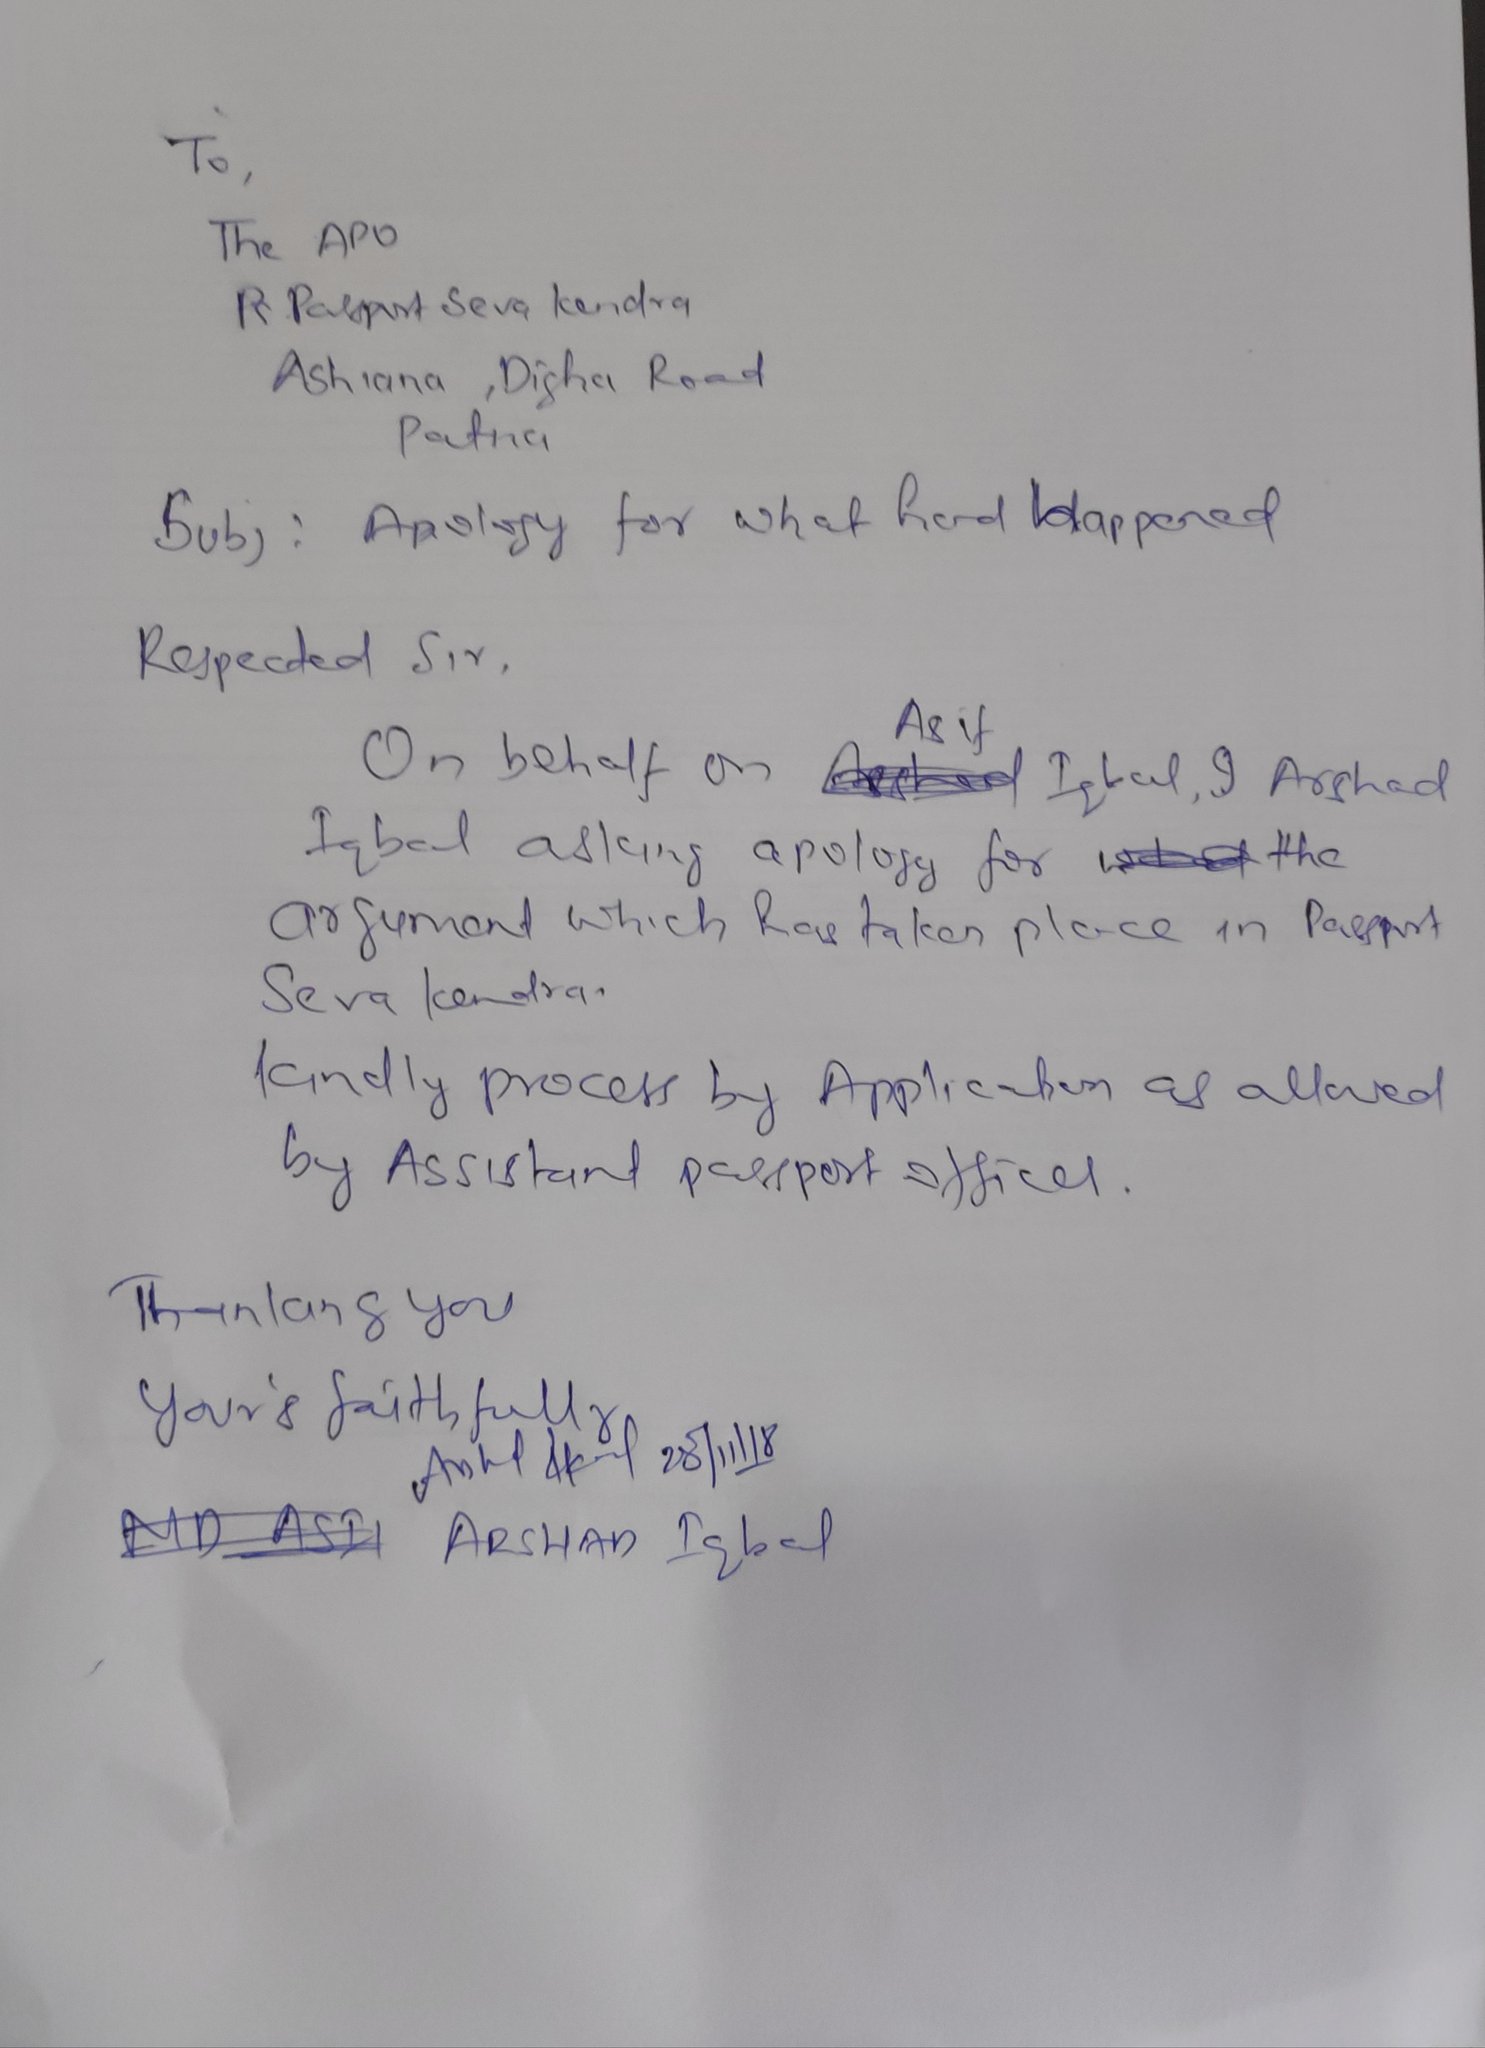 To,
The APO
R Passport Seva kendra
Ashiana , Digha Road
Patna
Subj: Apology for what had Happened
Respected Sir,
On behalf on Asif Iqbal, I Arshad
Iqbal asking apology for the
argument which has taken place in Passport
Seva kendra.
kindly process by Application as allowed
by Assistant passport officer.
Thanking you
Your's faithfully
28/11/18
MD ASIF ARSHAD Iqbal